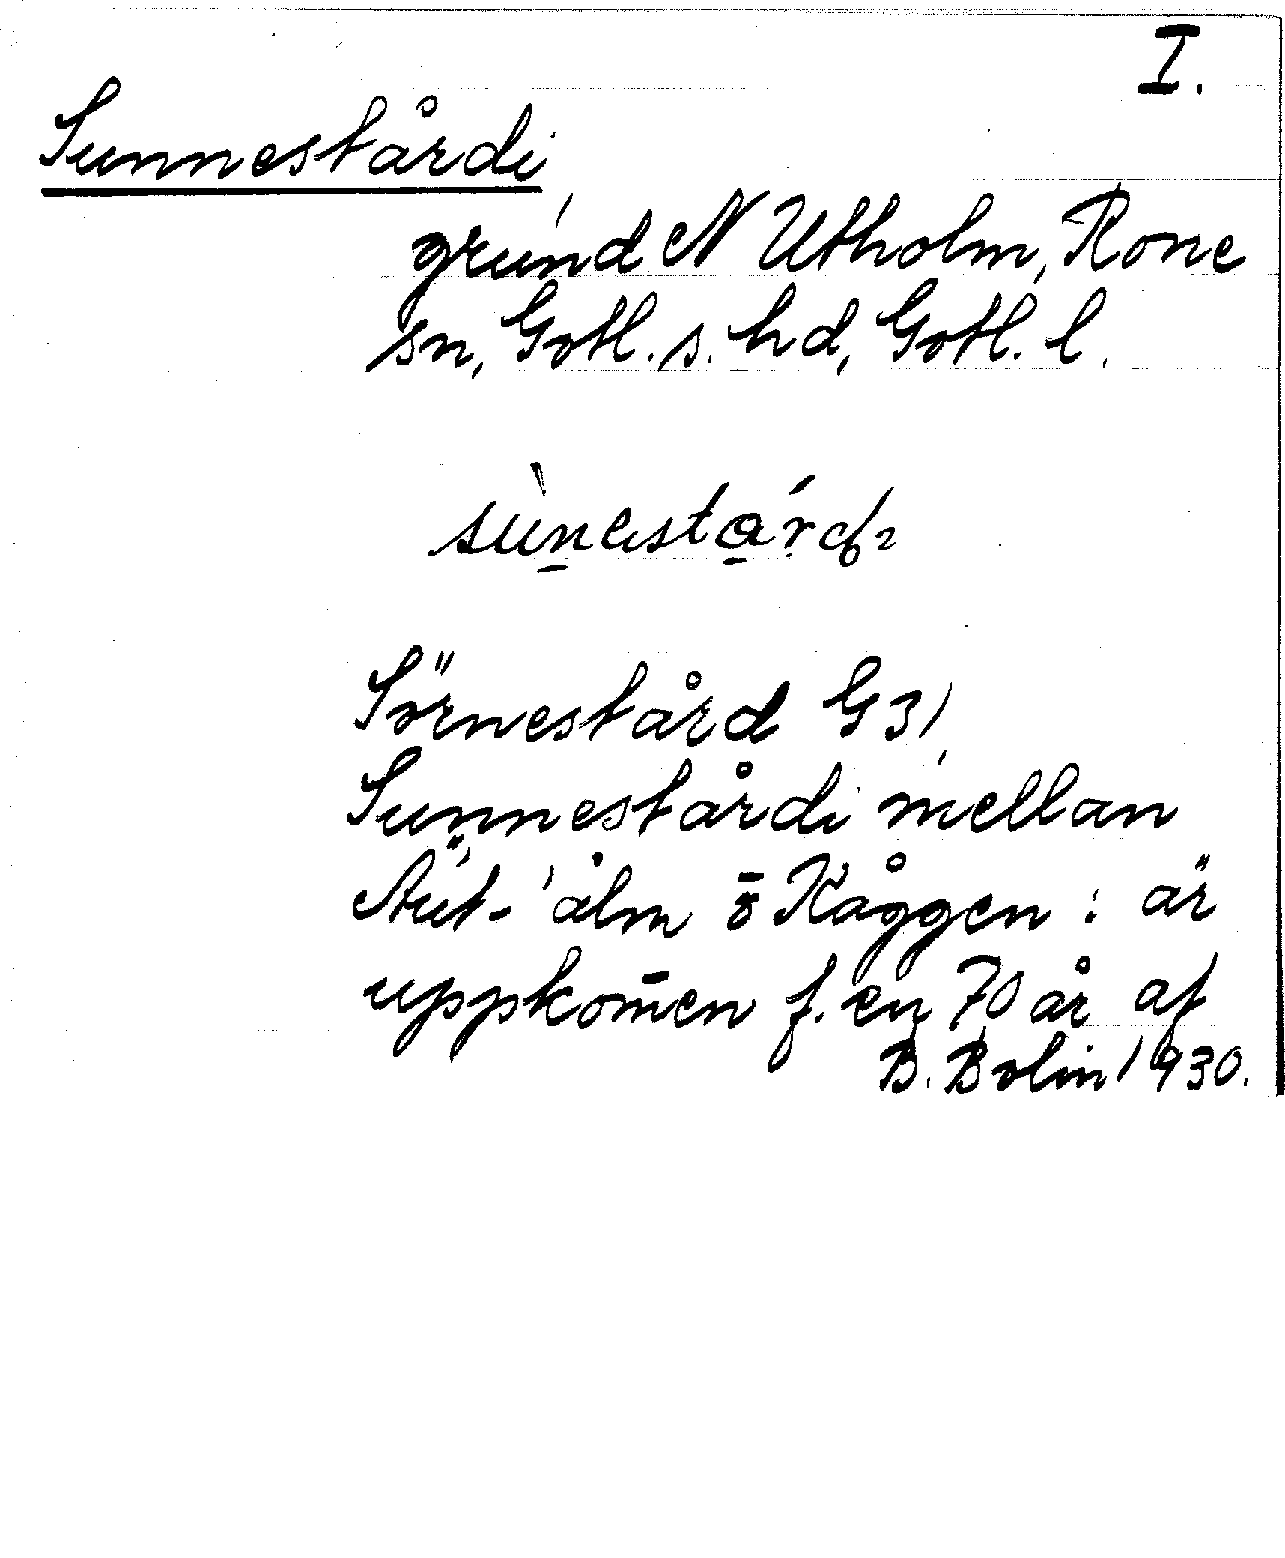 I.
Sunnestårdi
grund N Utholm, Rone
sn, Gotl. s. hd, Gotl. l.
Sörnestård G31,
Sunnestårdi mellan
Aut-alm ō Kåggen: är
uppkom̄en f. en 70 år af
B. Bolin 1930.